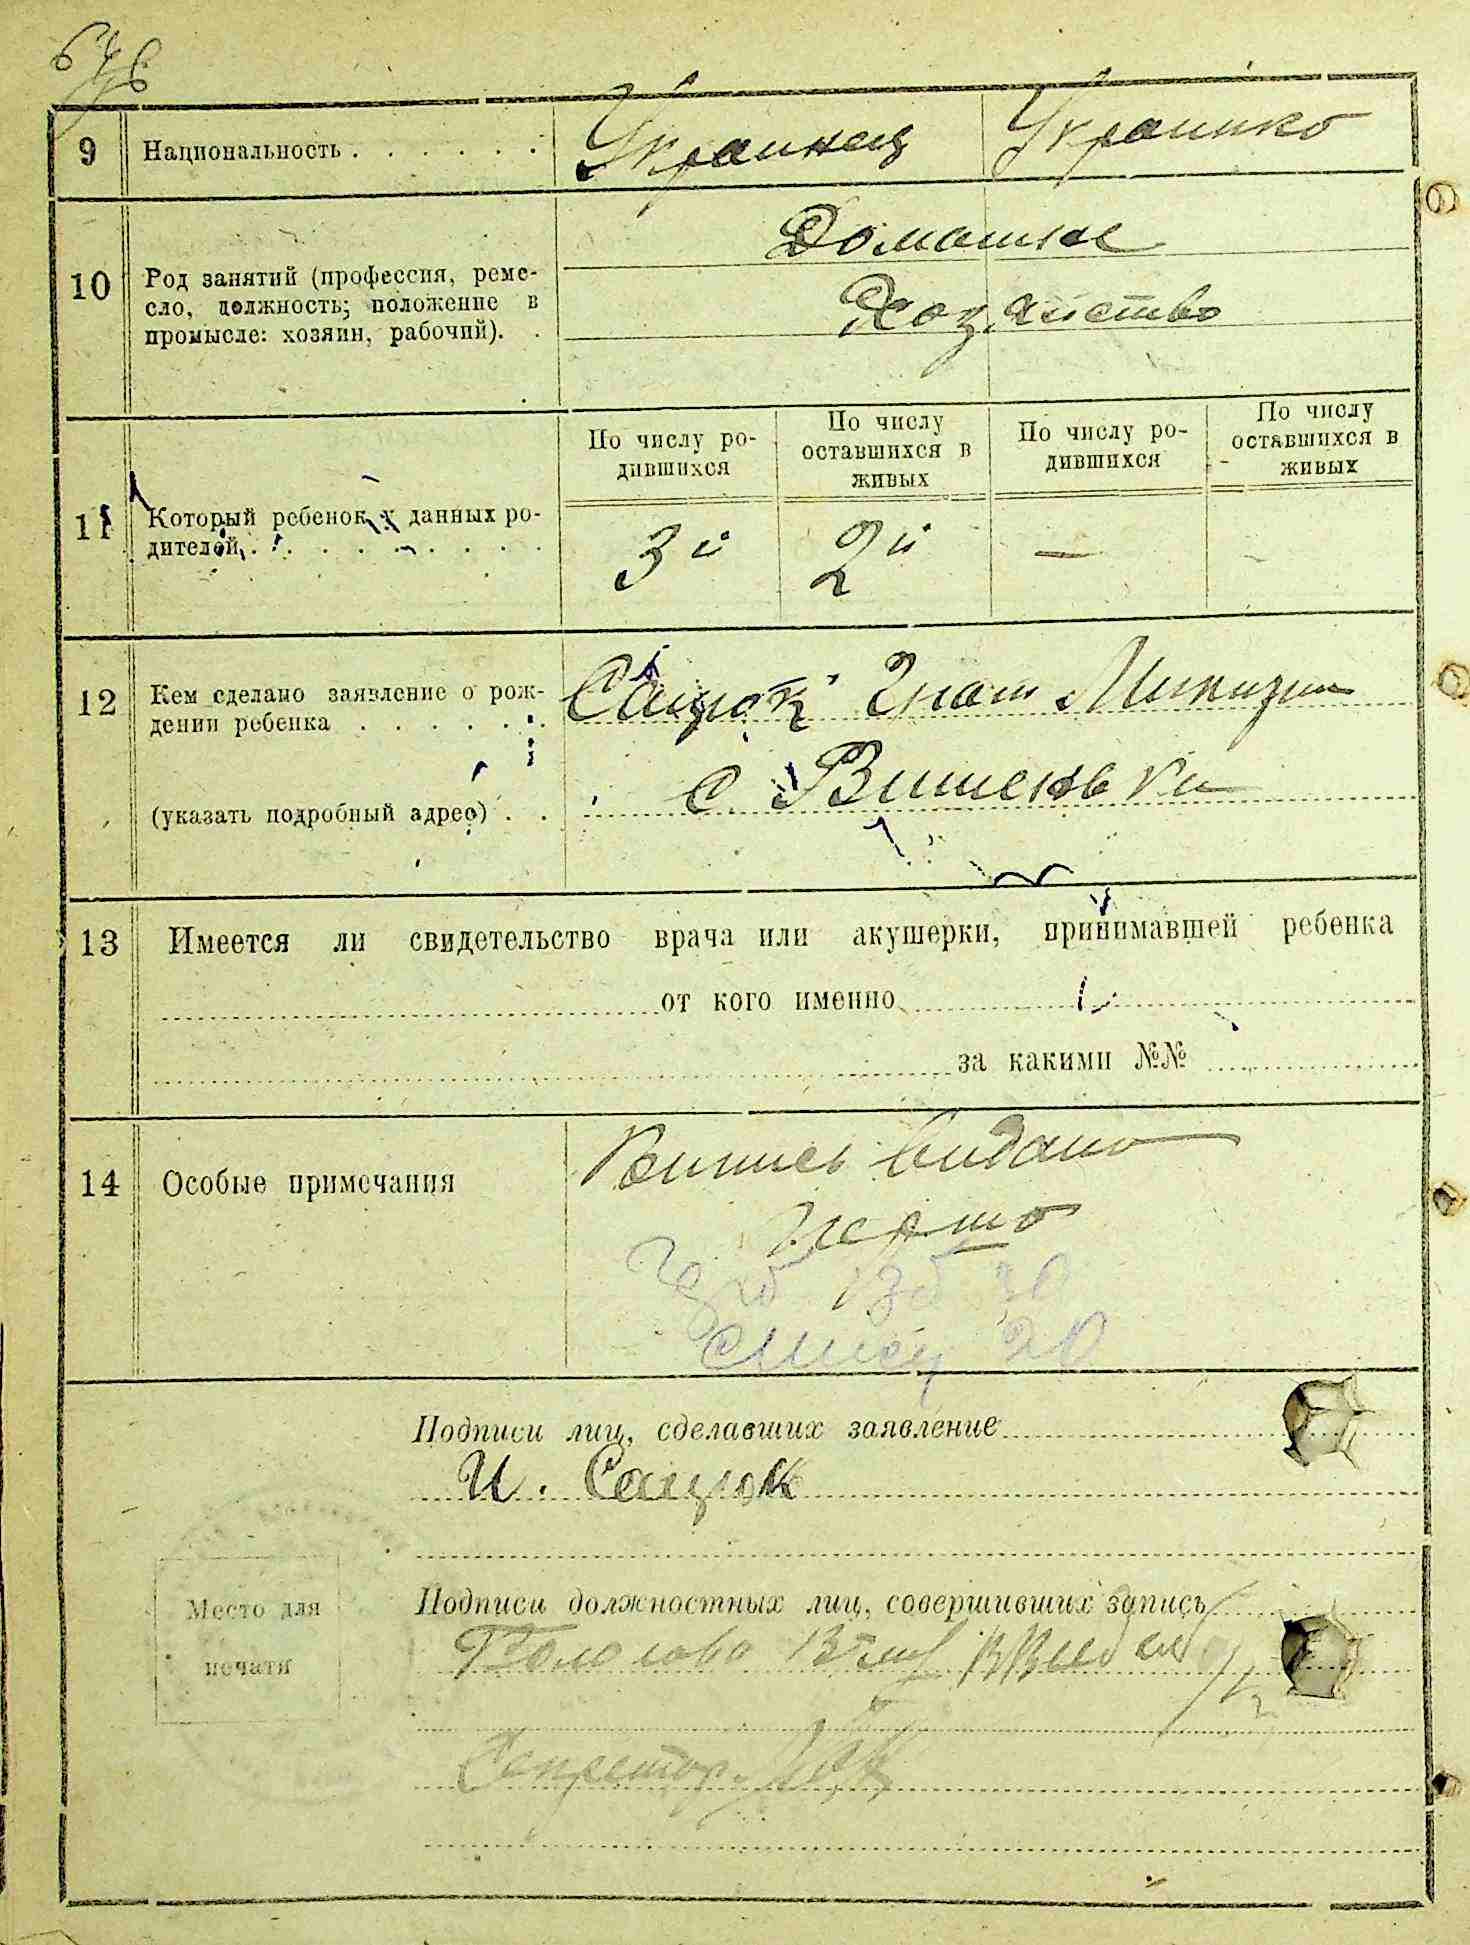 9 Национальность . . . . . . Украинец Украинко
Домашнє
10 Род занятий (профессия, ремесло, должность; положение в промысле: хозяин, рабочий). . Хозяйство
По числу родившихся По числу оставшихся в живых По числу родившихся По числу оставшихся в живых
11 Который ребенок у данных ро-
дителей . . . . . . . . . 3й 2й —
12 Кем сделано заявление о рож- Сацюк Гнат
дении ребенка . . . . . .
(указать подробный адрес) . . с. Вишеньки
13 Имеется ли свидетельство врача или акушерки, принимавшей ребенка
от кого именно
за какими №№
14 Особые примечания Випись видано
Подписи лиц, сделавших заявление
И. Сацюк
Место для
печати
Подписи должностных лиц, совершивших запись
Голова
Секретар